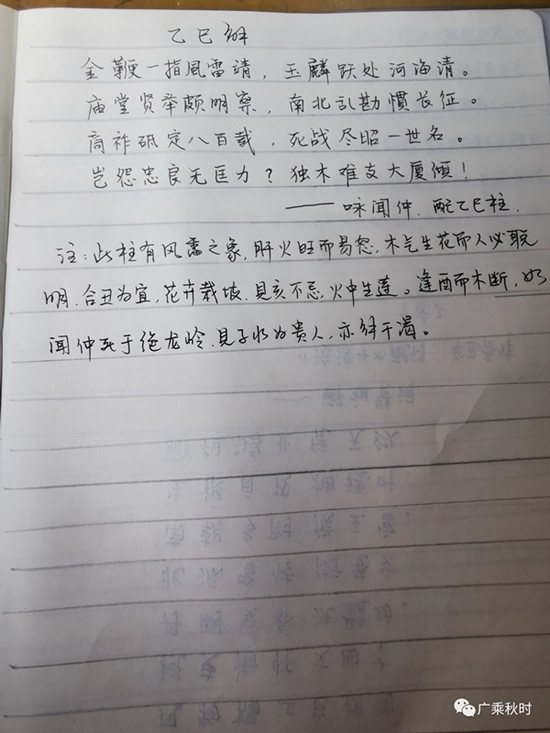 乙巳辩
金鞭一指風雷靖，玉麟跃处河海清。
庙堂贤举颇明察，南北乱勘慣长征。
商祚砥定八百载，死战尽昭一世名。
岂怨忠良无匡力？独木难支大厦傾！
——咏闻仲.配乙巳柱.
注：此柱有风雷之象，肝火旺而易怒，木气生花而人必聪
明，合丑为宜，花卉栽坡，見亥不忌，火中生莲。逢酉而木断，如
闻仲死于绝龙岭，見子水为貴人，亦解干渴。
广乘秋时